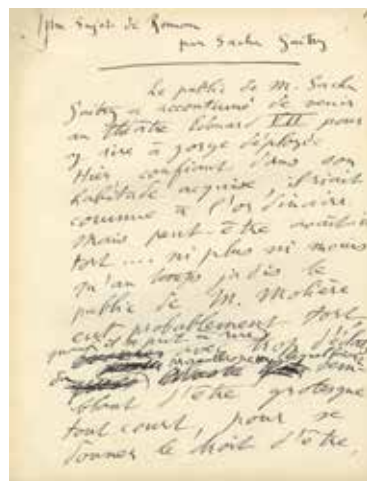 Sujet de Roman
par Sacha Guitry
Le public de M. Sacha
Guitry a accoutumé de venir
au théâtre Edouard VII pour
y rire à gorge déployée.
Hier confiant dans son
habitude acquise, il riait
comme à l'ordinaire.
Mais peut-être avait-il
tort... ni plus ni moins
qu'au temps jadis le
public de M. Molière
eut probablement tort
quand il se prit à rire
avec trop d'éclat
du
Alceste sem-
blant d'être grotesque
tout court, pour se
donner le droit d'être,